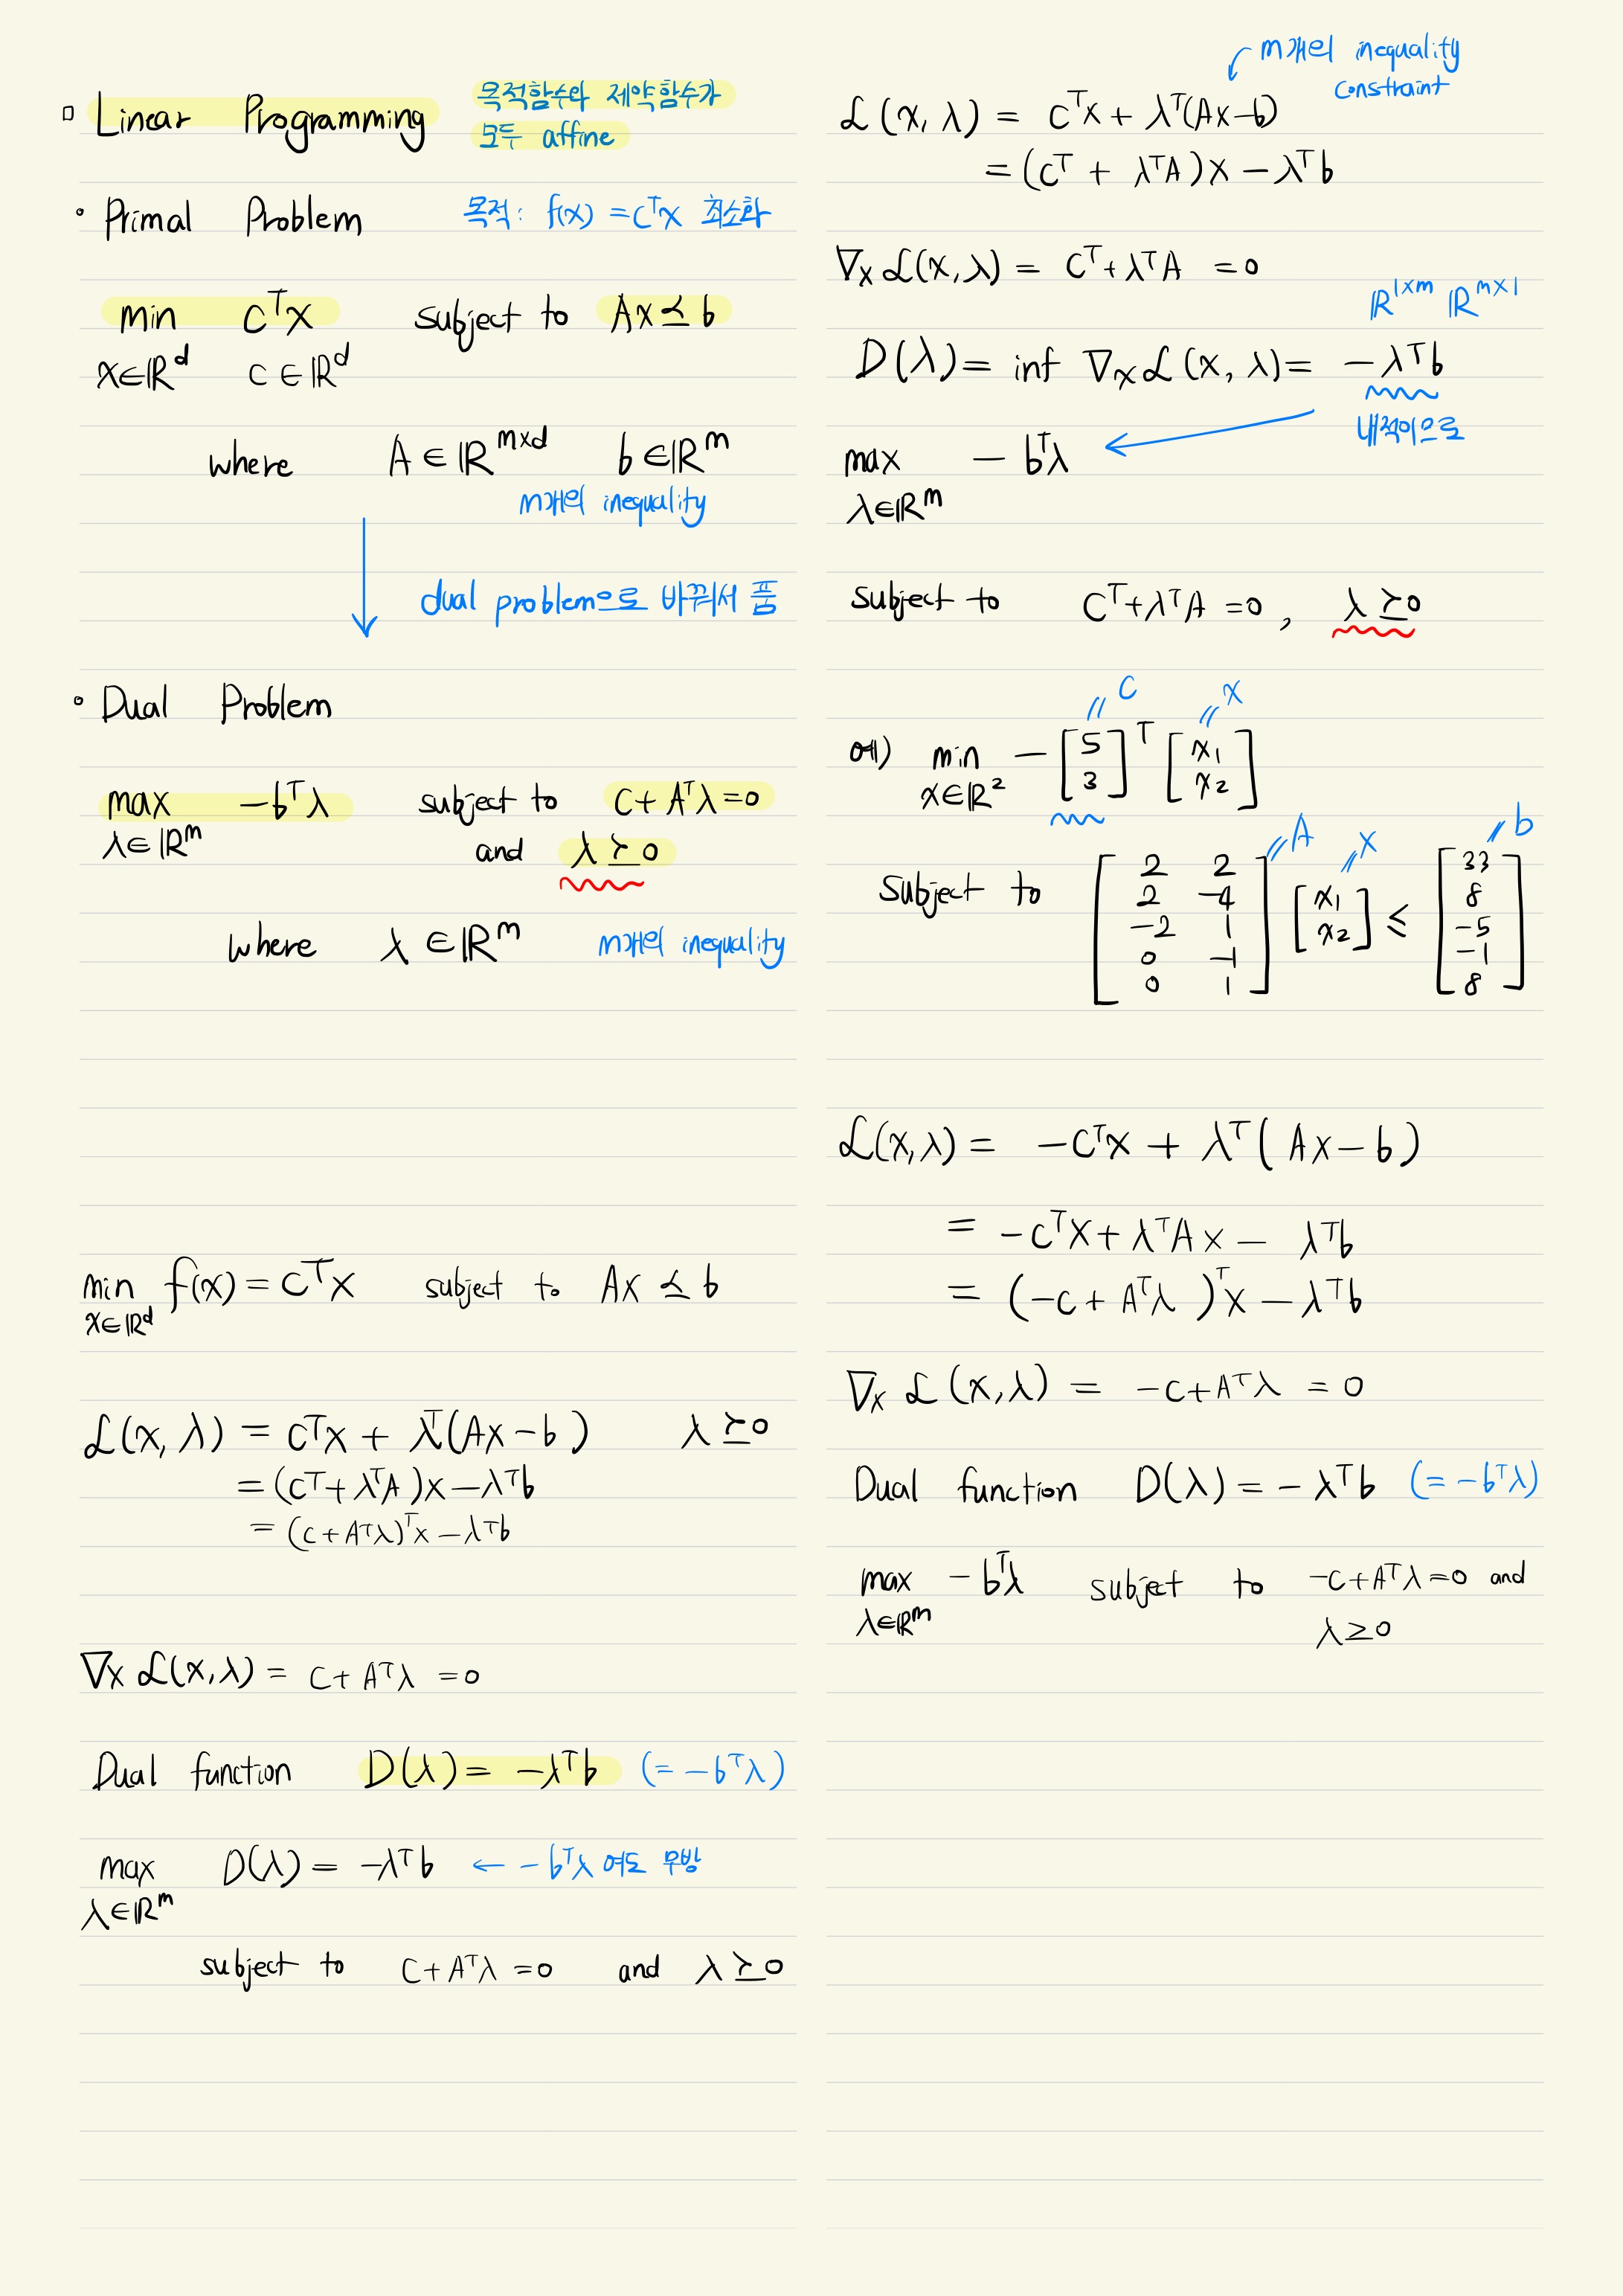 ▫ Linear Programming 목적함수와 제약함수가
모두 affine
• Primal Problem 목적: f(x) = cᵀx 최소화
min cᵀx subject to Ax ⪯ b
x∈ℝᵈ c∈ℝᵈ
where A∈ℝᵐˣᵈ b∈ℝᵐ
m개의 inequality
dual problem으로 바꿔서 품
• Dual Problem
max -bᵀλ subject to c+Aᵀλ=0
λ∈ℝᵐ and λ⪰0
where λ∈ℝᵐ m개의 inequality
min f(x) = cᵀx subject to Ax ⪯ b
x∈ℝᵈ
ℒ(x, λ) = cᵀx + λᵀ(Ax-b) λ⪰0
= (cᵀ+λᵀA)x - λᵀb
= (c+Aᵀλ)ᵀx - λᵀb
∇ₓℒ(x,λ) = c+Aᵀλ = 0
Dual function D(λ) = -λᵀb (= -bᵀλ)
max D(λ) = -λᵀb ← -bᵀλ 여도 무방
λ∈ℝᵐ
subject to c+Aᵀλ=0 and λ⪰0
m개의 inequality
constraint
ℒ(x, λ) = cᵀx + λᵀ(Ax-b)
= (cᵀ + λᵀA)x - λᵀb
∇ₓℒ(x,λ) = cᵀ+λᵀA = 0
ℝ¹ˣᵐ ℝᵐˣ¹
D(λ) = inf ∇ₓℒ(x, λ) = -λᵀb
내적이므로
max - bᵀλ
λ∈ℝᵐ
subject to cᵀ+λᵀA = 0, λ⪰0
〃c 〃x
예) min - [5 3]ᵀ [x₁ x₂]
x∈ℝ²
〃A 〃x 〃b
subject to [2 2
2 -4
-2 1
0 -1
0 1] [x₁ x₂] ≤ [33 8 -5 -1 8]
ℒ(x,λ) = -cᵀx + λᵀ(Ax-b)
= -cᵀx + λᵀAx - λᵀb
= (-c + Aᵀλ)ᵀx - λᵀb
∇ₓ ℒ(x,λ) = -c+Aᵀλ = 0
Dual function D(λ) = -λᵀb (= -bᵀλ)
max - bᵀλ subject to -c+Aᵀλ=0 and
λ∈ℝᵐ λ≥0